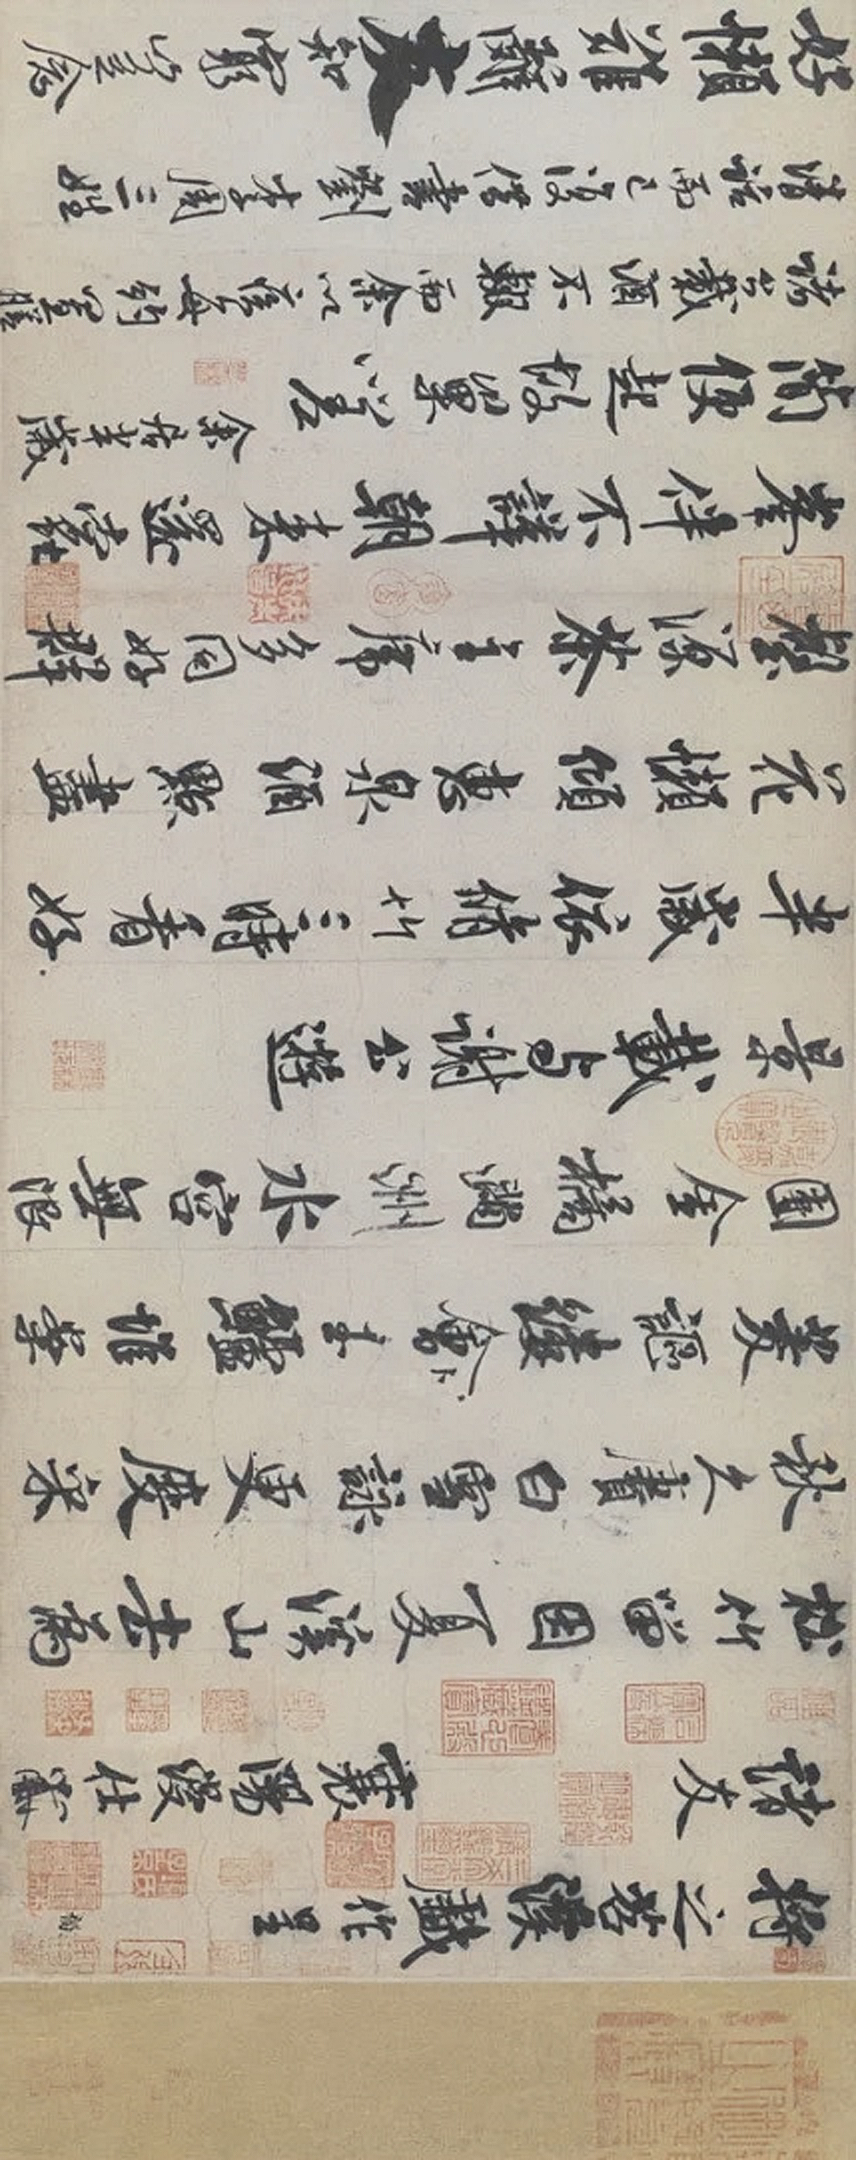 將之苕溪戲作呈
諸友 襄陽漫仕黻
松竹留因夏溪山去為
秋久賡白雪詠更度採
菱謳縷會玉鱸堆案
團金橘滿洲水宮無限
景載与謝公遊
半歲依脩竹三時看好
花懶傾惠泉酒點盡
壑源茶主席多同好群
峯伴不譁朝来還蠹
簡便起故巢嗟 余居半歲
諸公載酒不輟而余以疾每約置膳
清話而已復借書劉李周三姓
好懶難辭友知窮豈念